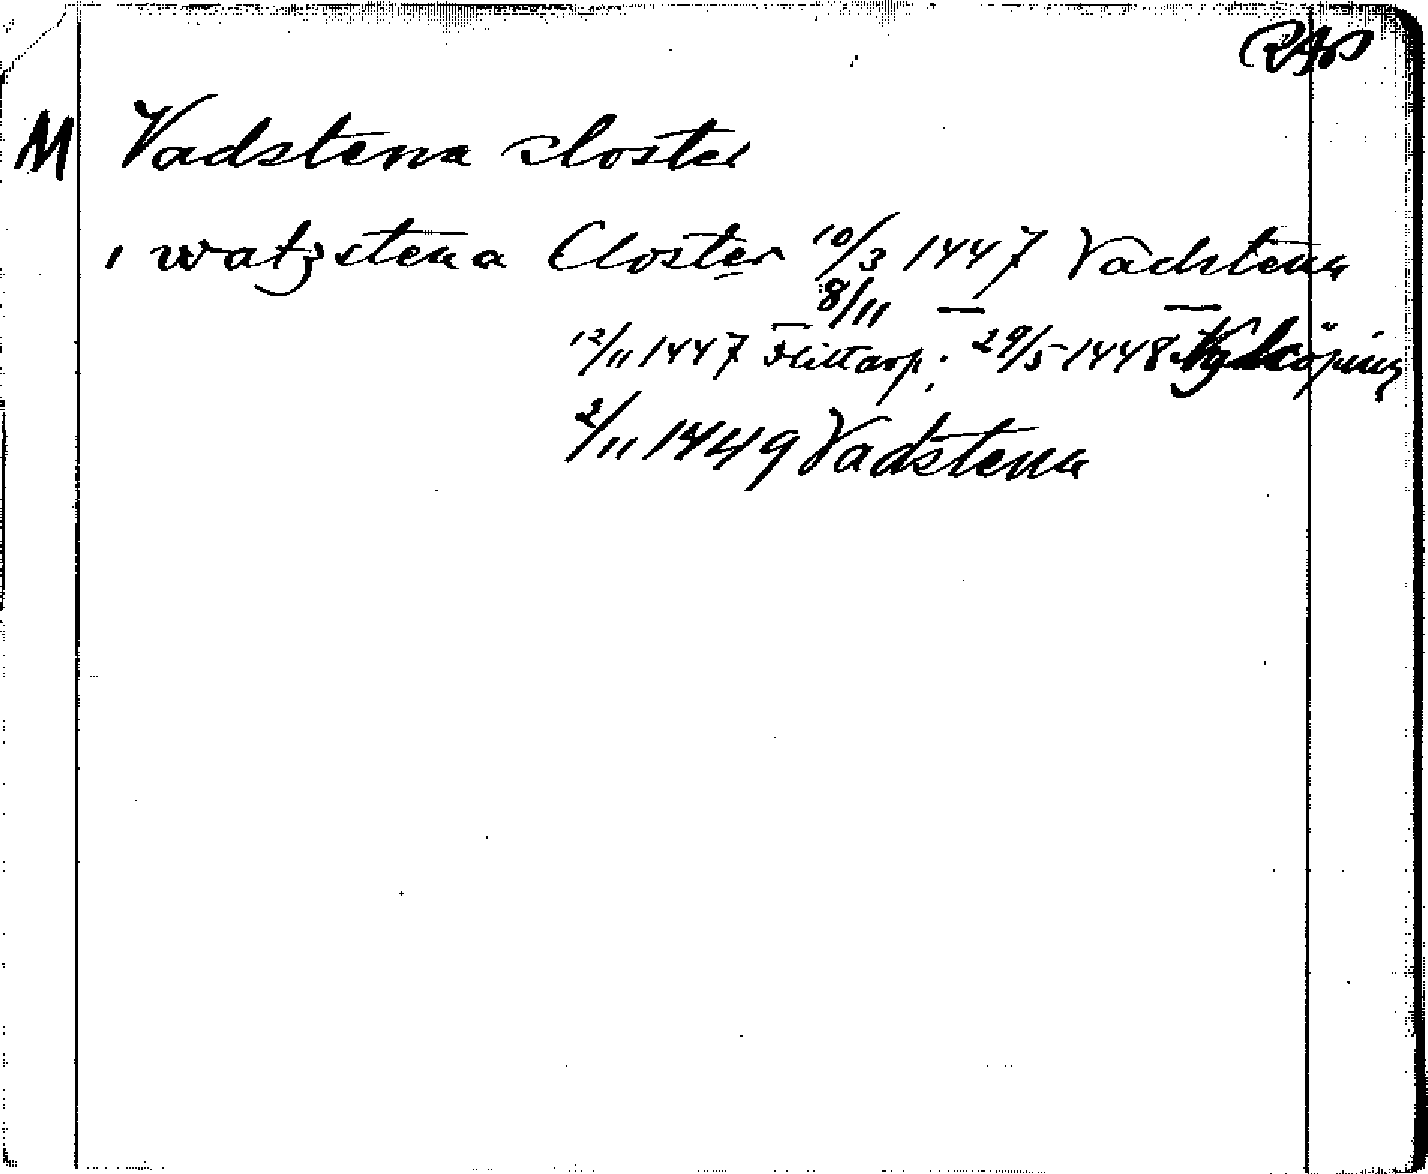 RAp
M Vadstena closter
i watzstena Closter 10/3 1447 Vadstena
8/11 — —
12/11 1447 Flittarp; 29/5 1448 Nyköping
2/11 1449 Vadstena